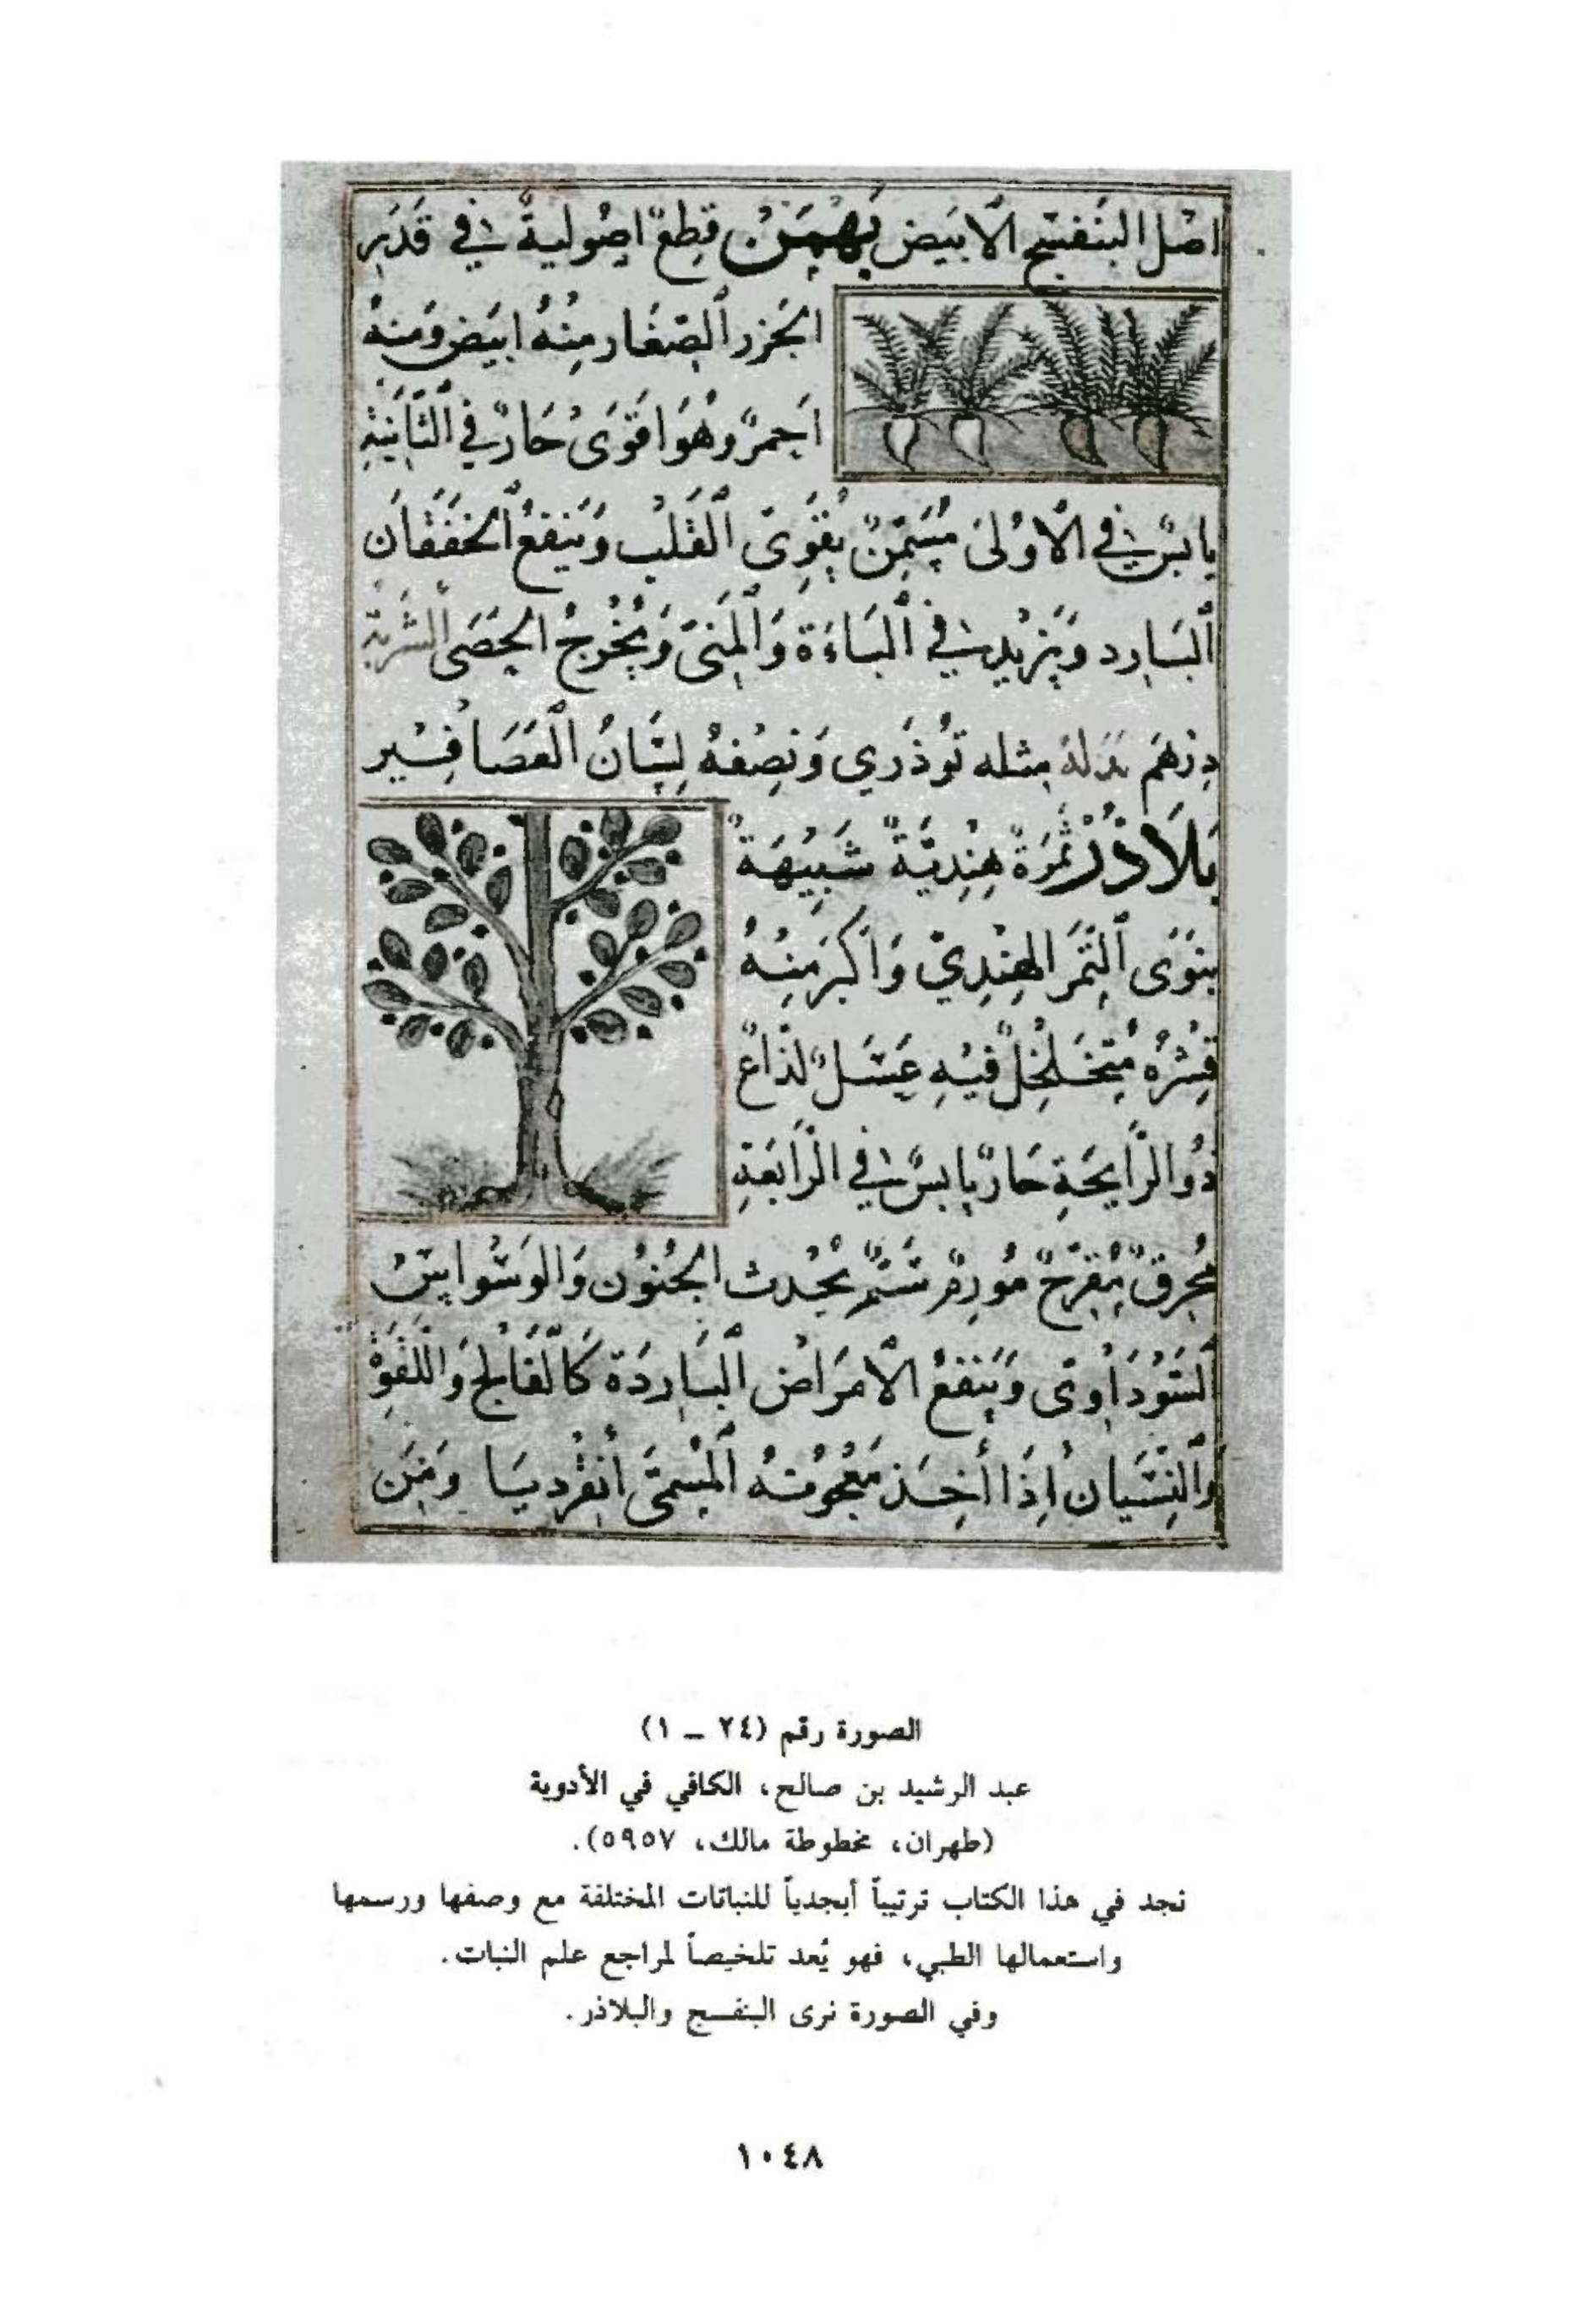 اصل البنفسج الابيض بَهْمَن قِطَعٌ اصُوليةٌ في قَدَرِ
الجَزَر الصِّغَار مِنْهُ ابيَض وَمِنهُ
احمرٌ وهُوَ اقوَىٰ حَارٌّ في الثَّانِيَةِ
يابسٌ في الاُولىٰ مُسَمِّنٌ يُقَوِّى القَلب وَيَنفعُ الخفَقَان
البَارِد وَيَزيد في البَاءَة وَالمنِى وَيُخْرِجُ الحَصَى الشربة
دِرْهَم بَدَلهُ مِثله تُوذَرِي وَنِصْفهُ لِسَانُ العَصَافِير
بَلَاذُر ثَمَرَةٌ هِنْدِيَّةٌ شَبِيهَةٌ
بنَوَى التَّمر الهِنْدِيّ وَاكبَر مِنْهُ
قِشْرُهُ مُتَخَلْخِلٌ فِيْهِ عَسَلٌ لذاعٌ
ذُو الرَّايحَةِ حَارٌّ يابسٌ في الرَّابعَةِ
مُحرِقٌ مُقَرِّحٌ مُورِمٌ سَمٌّ يُحْدث الجُنُوْن وَالوَسْوَاسُ
السَّوْدَاوِى وَيَنْفَعُ الاَمرَاض البَارِدَة كَالفَالِج وَاللَّقْوَة
وَالنِّسْيَان إِذَا أُخِذَ مَعْجُونُهُ المسَمَّى أَنقَردِيَا وَمَن
الصورة رقم (٢٤ – ١)
عبد الرشيد بن صالح، الكافي في الأدوية
(طهران، مخطوطة مالك، ٥٩٥٧).
نجد في هذا الكتاب ترتيباً أبجدياً للنباتات المختلفة مع وصفها ورسمها
واستعمالها الطبي، فهو يُعد تلخيصاً لمراجع علم النبات.
وفي الصورة نرى البنفسج والبلاذر.
١٠٤٨